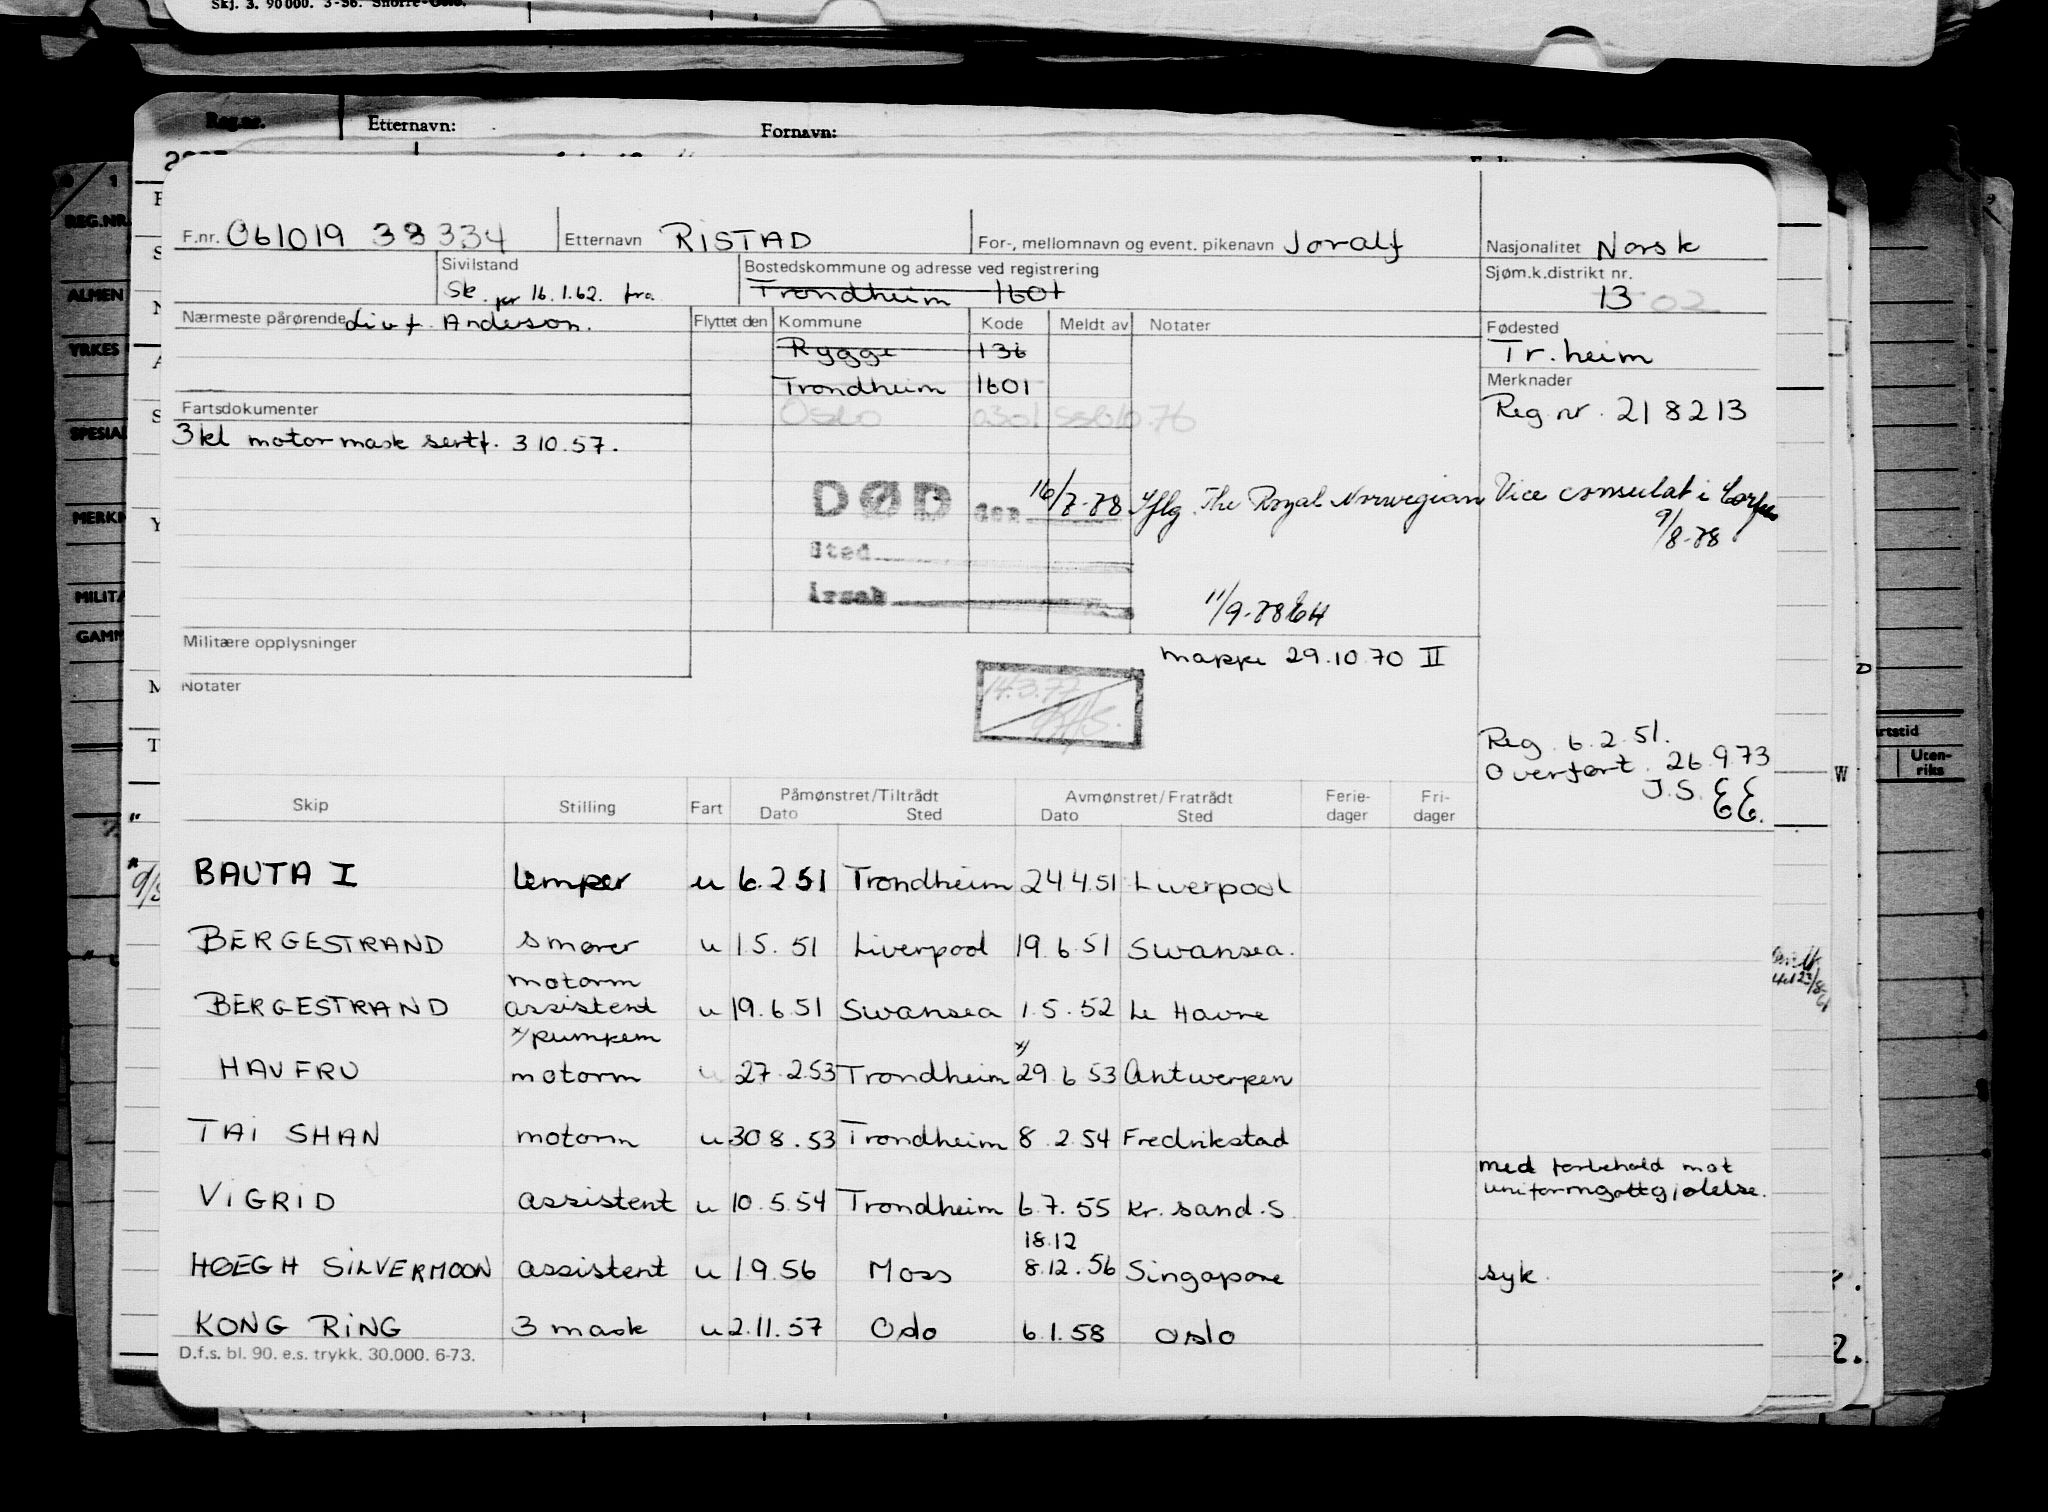 Skj. 3. 90000. 3-56.
Reg.nr. Etternavn: Fornavn:
F.nr. 061019 38334 Etternavn RISTAD For-, mellomnavn og event. pikenavn Joralf Nasjonalitet Norsk
Sivilstand Sk. pr 16.1.62. fra Bostedskommune og adresse ved registrering Trondheim 1601 Sjøm.k.distrikt nr. 13 02
Nærmeste pårørende Liv f. Anderson. Flyttet den Kommune Kode Meldt av Notater Fødested
Rygge 136 Tr.heim
Trondheim 1601 Merknader
Fartsdokumenter Oslo 0301 SSB 10.76 Reg nr. 218213
3 kl motormask sertf. 3 10.57.
DØD den 16/7-78 Iflg. The Royal Norwegian Vice consulat i Corfu
9/8-78
Sted
Årsak 11/9-78
Militære opplysninger mappe 29.10.70 II
Notater 14.3.77
Reg. 6.2.51.
Overført. 26.9.73
J.S.
Skip Stilling Fart Påmønstret/Tiltrådt Avmønstret/Fratrådt Ferie- Fri-
Dato Sted Dato Sted dager dager
BAUTA I lemper u 6.2.51 Trondheim 24.4.51 Liverpool
BERGESTRAND smører u 1.5.51 Liverpool 19.6.51 Swansea.
motorm
BERGESTRAND assistent u 19.6.51 Swansea 1.5.52 Le Havre
x/ pumpem x/
HAVFRU motorm u 27.2.53 Trondheim 29.6.53 Antwerpen
TAI SHAN motorm u 30 8.53 Trondheim 8.2.54 Fredrikstad
med forbehold mot
uniformgottgjølelse.
VIGRID assistent u 10.5.54 Trondheim 6.7.55 Kr.sand.S
18.12
HØEGH SILVERMOON assistent u 1.9.56 Moss 8.12.56 Singapore syk.
KONG RING 3 mask u 2.11.57 Oslo 6.1.58 Oslo
D.f.s. bl. 90. e.s. trykk. 30.000. 6-73.